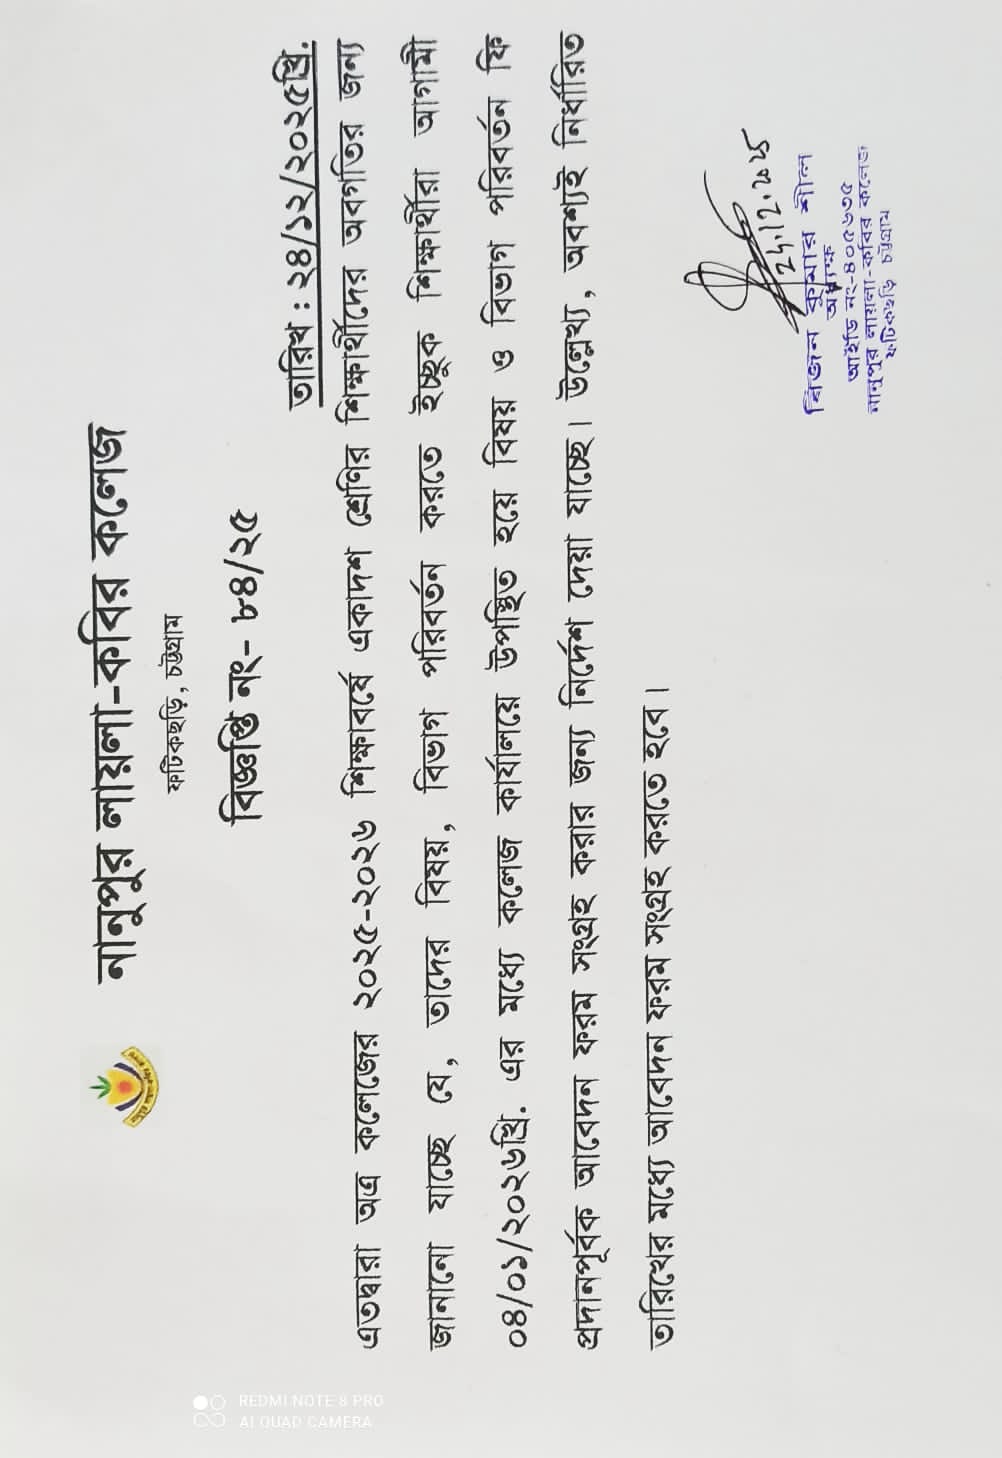 নানুপুর লায়লা-কবির কলেজ
ফটিকছড়ি, চট্টগ্রাম
বিজ্ঞপ্তি নং- ৮৪/২৫
তারিখ : ২৪/১২/২০২৫খ্রি.
এতদ্বারা অত্র কলেজের ২০২৫-২০২৬ শিক্ষাবর্ষে একাদশ শ্রেণির শিক্ষার্থীদের অবগতির জন্য
জানানো যাচ্ছে যে, তাদের বিষয়, বিভাগ পরিবর্তন করতে ইচ্ছুক শিক্ষার্থীরা আগামী
০৪/০১/২০২৬খ্রি. এর মধ্যে কলেজ কার্যালয়ে উপস্থিত হয়ে বিষয় ও বিভাগ পরিবর্তন ফি
প্রদানপূর্বক আবেদন ফরম সংগ্রহ করার জন্য নির্দেশ দেয়া যাচ্ছে। উল্লেখ্য, অবশ্যই নির্ধারিত
তারিখের মধ্যে আবেদন ফরম সংগ্রহ করতে হবে।
বিজন কুমার শীল
অধ্যক্ষ
আইডি নং-৪০৫৬৩৫
নানুপুর লায়লা-কবির কলেজ
ফটিকছড়ি চট্টগ্রাম
REDMI NOTE 8 PRO
AI QUAD CAMERA